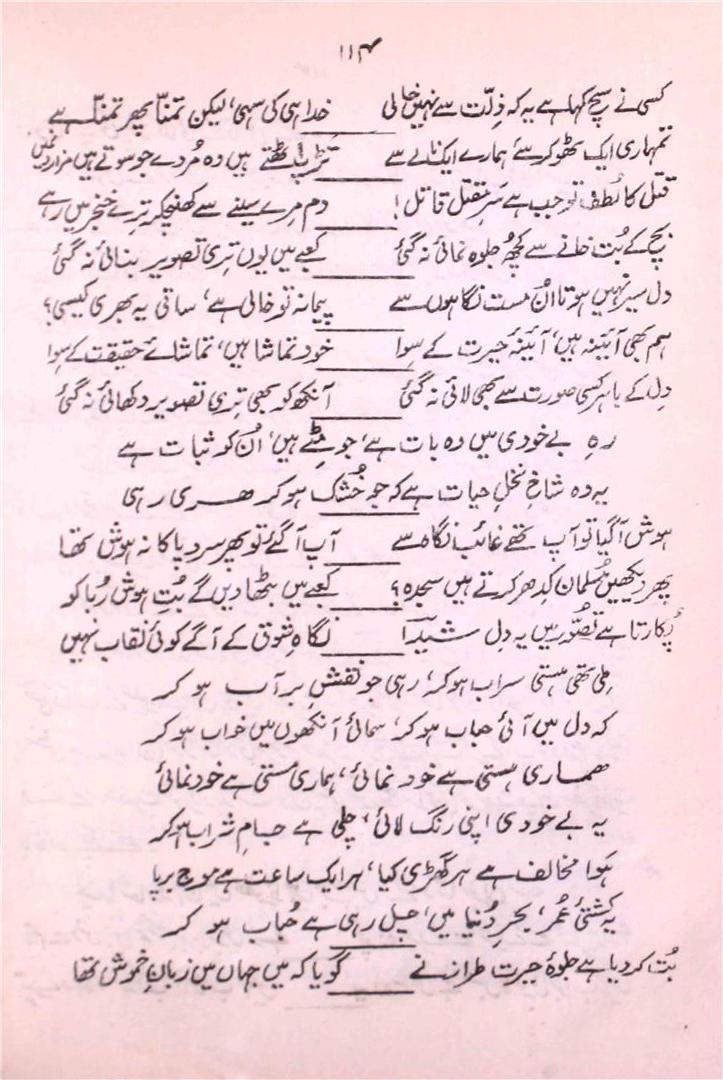 ۱۱۴
کسی نے سچ کہا ہے یہ کہ ذِلّت سے نہیں خالی خدا ہی کی سہی، لیکن تمنّا پھر تمنّا ہے
تمہاری ایک ٹھوکر سے، ہمارے ایک نالے سے تڑپ اُٹھتے ہیں وہ مُردے جو سوتے ہیں مزاروں میں
قتل کا لُطف تو جب ہے سَرِ مقتل قاتل! دم مِرے سینے سے کھنچ کر ترے خنجر میں رہے
بچ کے بُت خانے سے کچھ جلوہ نمائی نہ گئی کعبے میں یوں تری تصویر بنائی نہ گئی
دل سیر نہیں ہوتا اُن مست نگاہوں سے پیمانہ تو خالی ہے، ساقی یہ بھری کیسی؟
ہم بھی آئینہ ہیں، آئینۂ حیرت کے سِوا خود تماشا ہیں، تماشائے حقیقت کے سِوا
دِل کے باہر کسی صورت سے بھی لائی نہ گئی آنکھ کو بھی تری تصویر دکھائی نہ گئی
رہِ بے خودی میں وہ بات ہے، جو مِٹے ہیں، اُن کو ثبات ہے
یہ وہ شاخِ نخلِ حیات ہے کہ جو خُشک ہو کر ہری رہی
ہوش آگیا تو آپ تھے غائب نگاہ سے آپ آگئے تو پھر سر و پا کا نہ ہوش تھا
پھر دیکھیں مُسلمان کِدھر کرتے ہیں سجدہ؟ کعبے میں بٹھا دیں گے بُتِ ہوش رُبا کو
پُکارتا ہے تصوّر میں یہ دِل شیدا نگاہِ شوق کے آگے کوئی نقاب نہیں
مِلی تھی ہستی سراب ہو کر، رہی جو نقشِ بر آب ہو کر
کہ دل میں آئی حباب ہو کر، سمائی آنکھوں میں خواب ہو کر
ہماری ہستی ہے خود نمائی، ہماری مستی ہے خود نمائی
یہ بے خودی اپنی رنگ لائی، چلی ہے جامِ شراب ہو کر
ہَوا مخالف ہے ہر گھڑی کیا، ہر ایک ساعت ہے موج برپا
یہ کشتئ عُمر، بحرِ دُنیا میں، چل رہی ہے حُباب ہو کر
بُت کر دیا ہے جلوۂ حیرت طراز نے گویا کہ میں جہاں میں زبانِ خموش تھا